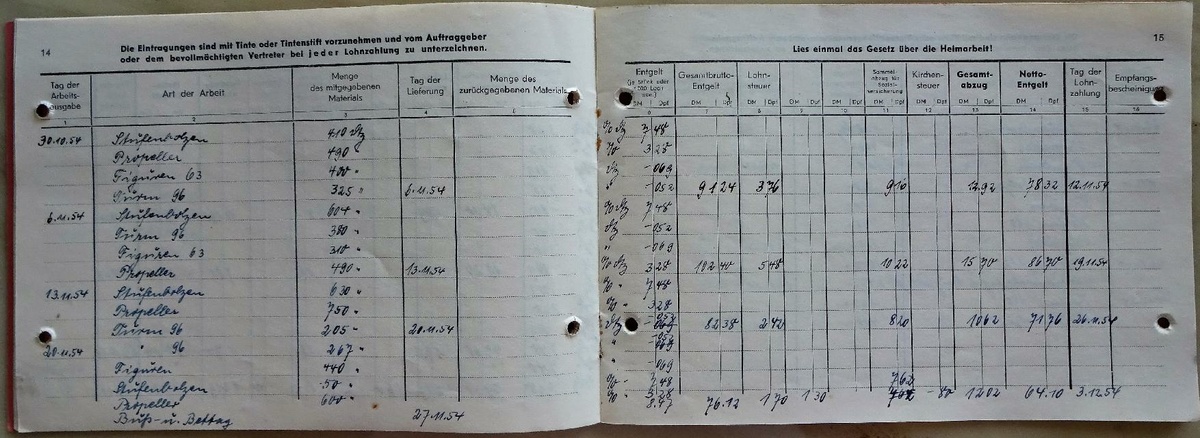 14
Die Eintragungen sind mit Tinte oder Tintenstift vorzunehmen und vom Auftraggeber
oder dem bevollmächtigten Vertreter bei jeder Lohnzahlung zu unterzeichnen.
Tag der Arbeitsausgabe
Art der Arbeit
Menge des mitgegebenen Materials
Tag der Lieferung
Menge des zurückgegebenen Materials
1 2 3 4 5
30.10.54 Stufenbolzen 410 Stg
Propeller 490 "
Figuren 63 400 "
Turm 96 325 " 6.11.54
6.11.54 Stufenbolzen 604 "
Turm 96 380 "
Figuren 63 310 "
Propeller 490 " 13.11.54
13.11.54 Stufenbolzen 630 "
Propeller 750 "
Turm 96 205 " 20.11.54
20.11.54 " 96 267 "
Figuren 440 "
Stufenbolzen 50 "
Propeller 600 "
Buß- u. Bettag 27.11.54
15
Lies einmal das Gesetz über die Heimarbeit!
Entgelt
Gesamtbrutto-Entgelt
Lohnsteuer
Kirchensteuer
Gesamtabzug
Netto-Entgelt
Tag der Lohnzahlung
Empfangsbescheinigung
DM Dpf DM Dpf DM Dpf DM Dpf DM Dpf DM Dpf DM Dpf DM Dpf DM Dpf
6 7 8 9 10 11 12 13 14 15 16
% Stg 7 48
% 3 28
Stg -069
" -052 91 24 3 76 9 10 12.92 78 32 12.11.54
% Stg 7 48
Stg -052
" -069
% Stg 3 28 102 40 5 48 10 22 15 70 86 70 19.11.54
% " 7 48
% " 3 28
82 38 2 42 8 20 10 62 71 76 26.11.54
" -069
% " 7 48 7 62
% 3 28 76.12 1 70 1 30 - 80 12 02 64.10 3.12.54